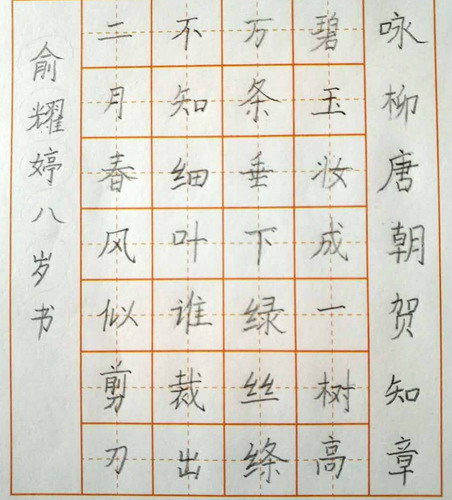 咏柳唐朝贺知章
碧玉妆成一树高
万条垂下绿丝绦
不知细叶谁裁出
二月春风似剪刀
俞耀婷八岁书